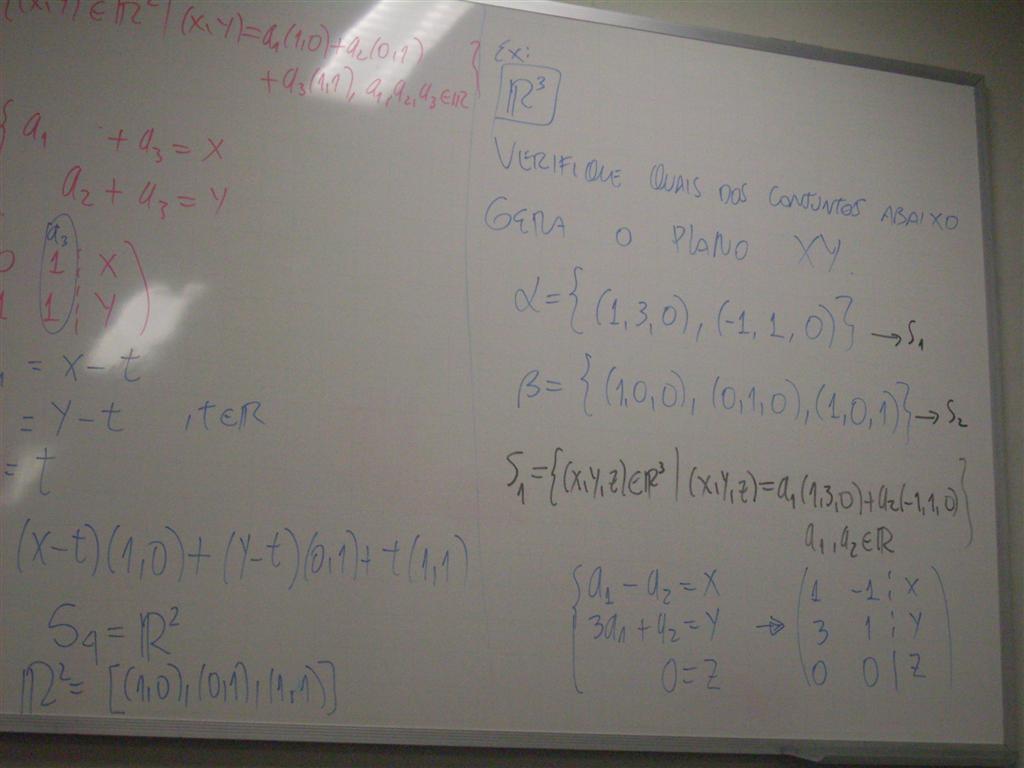 (X,Y) ∈ ℝ² | (X,Y)=a₁(1,0)+a₂(0,1)
+a₃(1,1), a₁,a₂,a₃∈ℝ}
{a₁ +a₃=X
a₂+a₃=Y
a₃
0 1 ¦ X)
1 1 ¦ Y)
₁ = X-t
= Y-t , t∈ℝ
= t
(X-t)(1,0)+(Y-t)(0,1)+t(1,1)
S₄=ℝ²
ℝ²=[(1,0),(0,1),(1,1)]
Ex:
ℝ³
VERIFIQUE QUAIS DOS CONJUNTOS ABAIXO
GERA O PLANO XY.
α={(1,3,0),(-1,1,0)} →S₁
β={(1,0,0),(0,1,0),(1,0,1)} →S₂
S₁={(X,Y,Z)∈ℝ³ | (X,Y,Z)=a₁(1,3,0)+a₂(-1,1,0)
a₁,a₂∈ℝ}
{a₁-a₂=X
3a₁+a₂=Y ⇒
0=Z
(1 -1 ¦ X
3 1 ¦ Y
0 0 | Z)